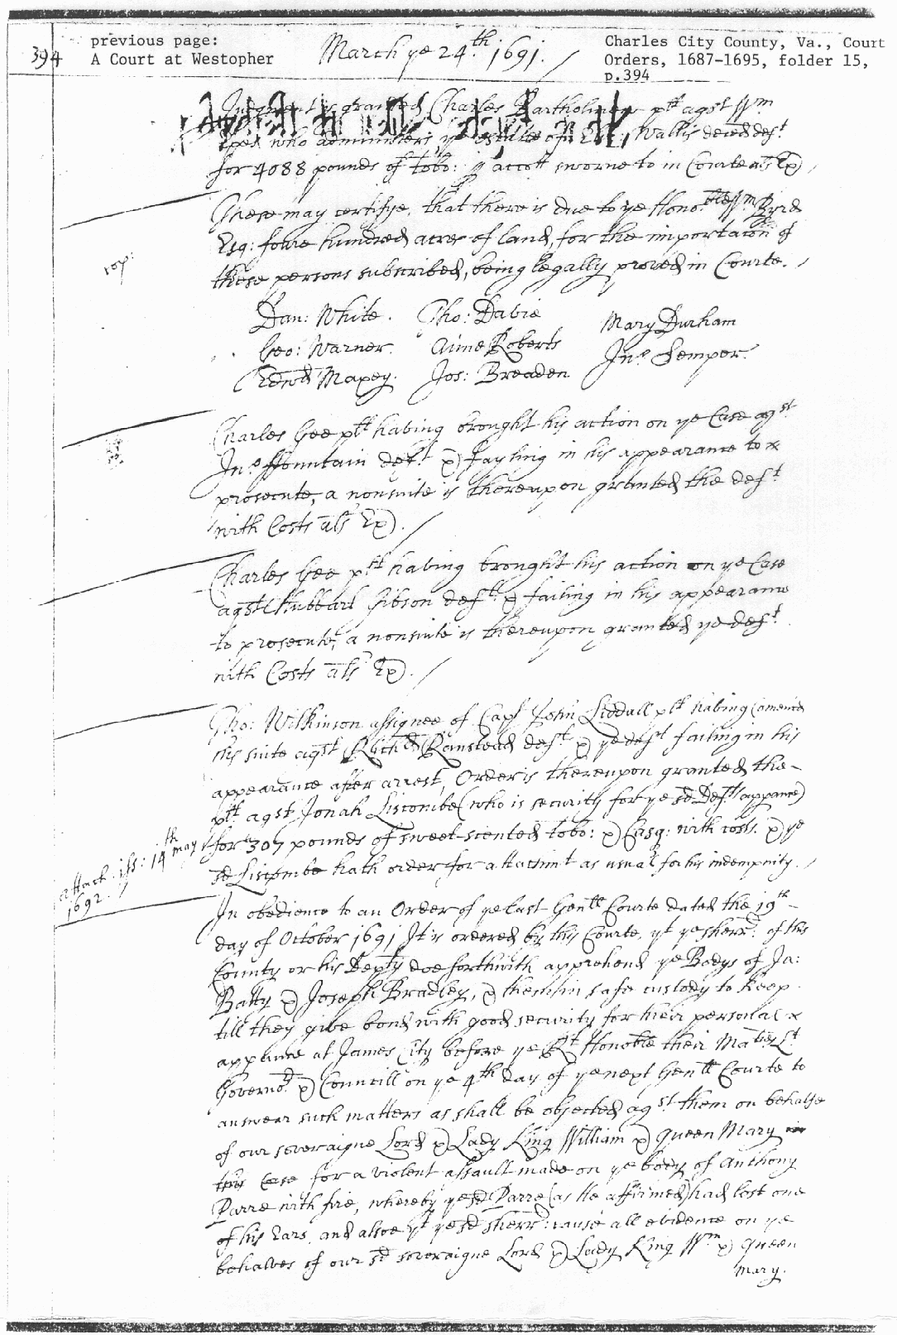 394
previous page:
A Court at Westopher
March ye 24th 1691.
Charles City County, Va., Court
Orders, 1687-1695, folder 15,
p.394
Judgmt is granted Charles Bartholmew plt agst Wm
who administers ye estate of Wallis deced deft
for 4088 pounds of tobo: p accott sworne to in Courte als Ex)
These may certifye, that there is due to ye Honoble Wm Byrd
Esq: foure hundred acres of land, for the importacon of
these persons subscribed, being legally proved in Courte.
Dan: White. Tho: Davis Mary Durham
Geo: Warner. Aime Roberts Jno Semper.
Edwd Maxey. Jos: Breaden
Charles Gee plt having brought his action on ye Case agst
Jno ffountain deft & fayling in his appearance to
prosecute, a nonsuite is thereupon granted the deft
with Costs als Ex).
Charles Gee plt having brought his action on ye Case
agst Hubbart Gibson deft & failing in his appearance
to prosecute, a nonsuite is thereupon granted ye deft
with Costs als Ex).
Tho: Wilkinson assignee of Capt John Liddall plt having comenced
his suite agst Richd Ranstead deft & ye deft failing in his
appearance after arrest, Order is thereupon granted the
plt agst Jonah Liscombe (who is security for ye sd Defts appance)
for 307 pounds of sweet scented tobo: & Casq: with costs. & ye
sd Liscombe hath order for attachmt as usual for his indempnity.
attach. iss: 14th may
1692.
In obedience to an Order of ye last Genll Courte dated the 19th
day of October 1691 It is ordered by this Courte, yt ye sherr: of this
County or his Depty doe forthwith apprehend ye Bodys of Ja:
Batty & Joseph Bradley, & them in safe custody to keep
till they give bond with good security for their personal
appance at James City before ye Rt Honoble their Maties Lt
Governor & Councill on ye 4th day of ye next Genll Courte to
answear such matters as shall be objected agst them on behalfe
of our soveraigne Lord & Lady King William & Queen Mary in
this Case for a violent assault made on ye body of Anthony
Parre with fire, whereby ye sd Parre (as he affirmed) had lost one
of his Ears, and alsoe yt ye sd sherr: cause all evidence on ye
behalves of our sd soveraigne Lord & Lady King Wm & Queen
Mary.